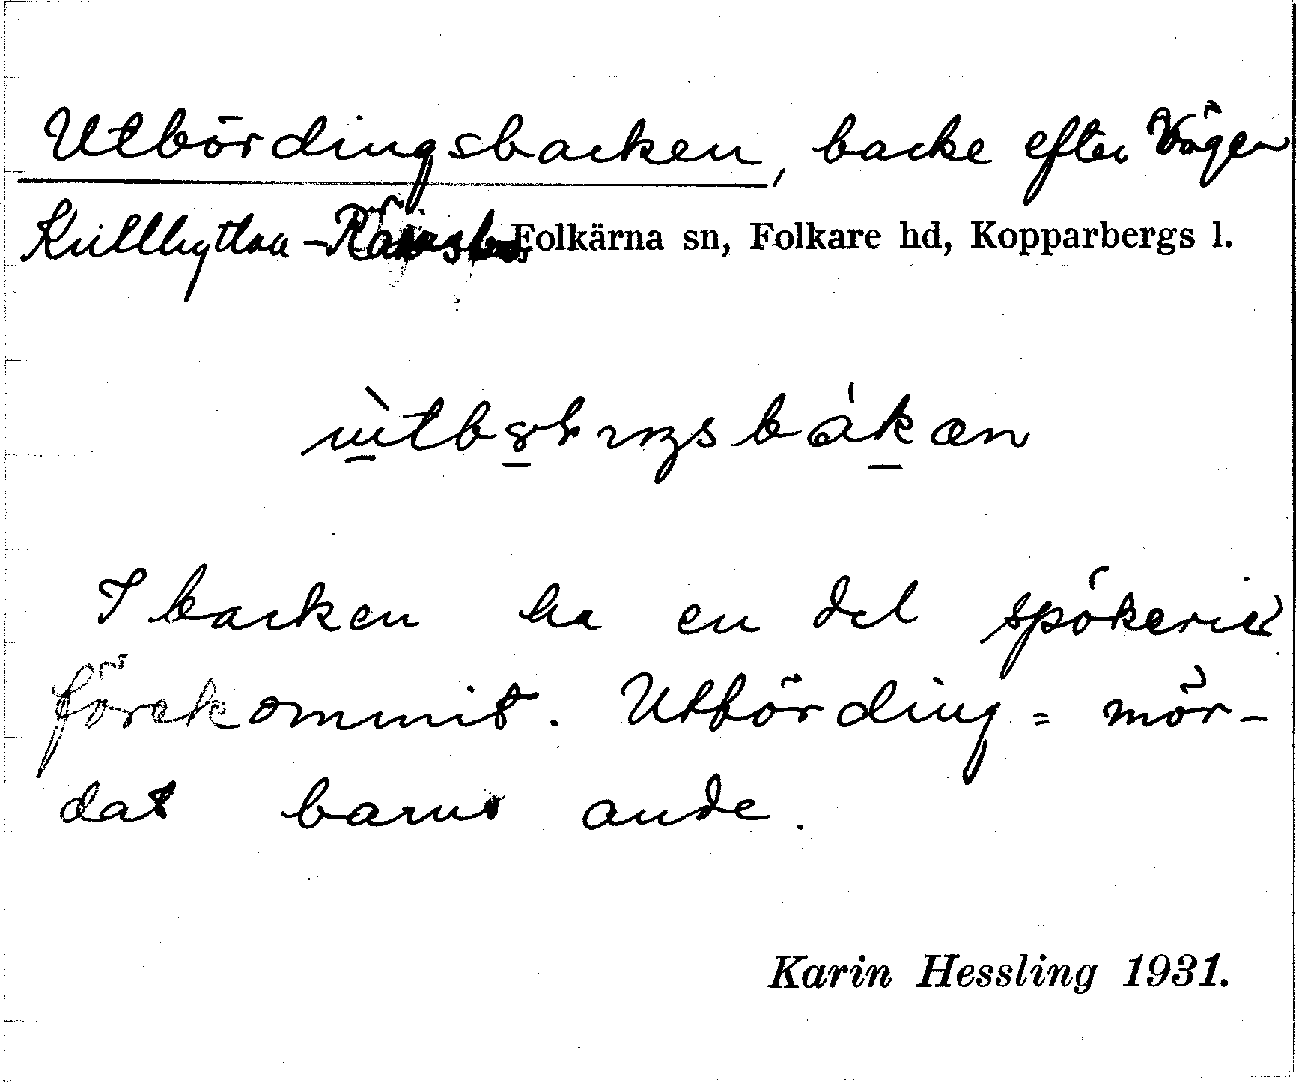 Utbördingsbacken, backe efter vägen
Kullhyttan - Folkärna sn, Folkare hd, Kopparbergs l.
I backen ha en del spökerier
förekommit. Utbörding = mör-
dat barns ande.
Karin Hessling 1931.